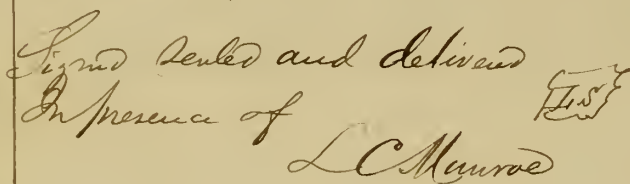 Signed sealed and delivered
In presence of {L.S}
L C Munroe